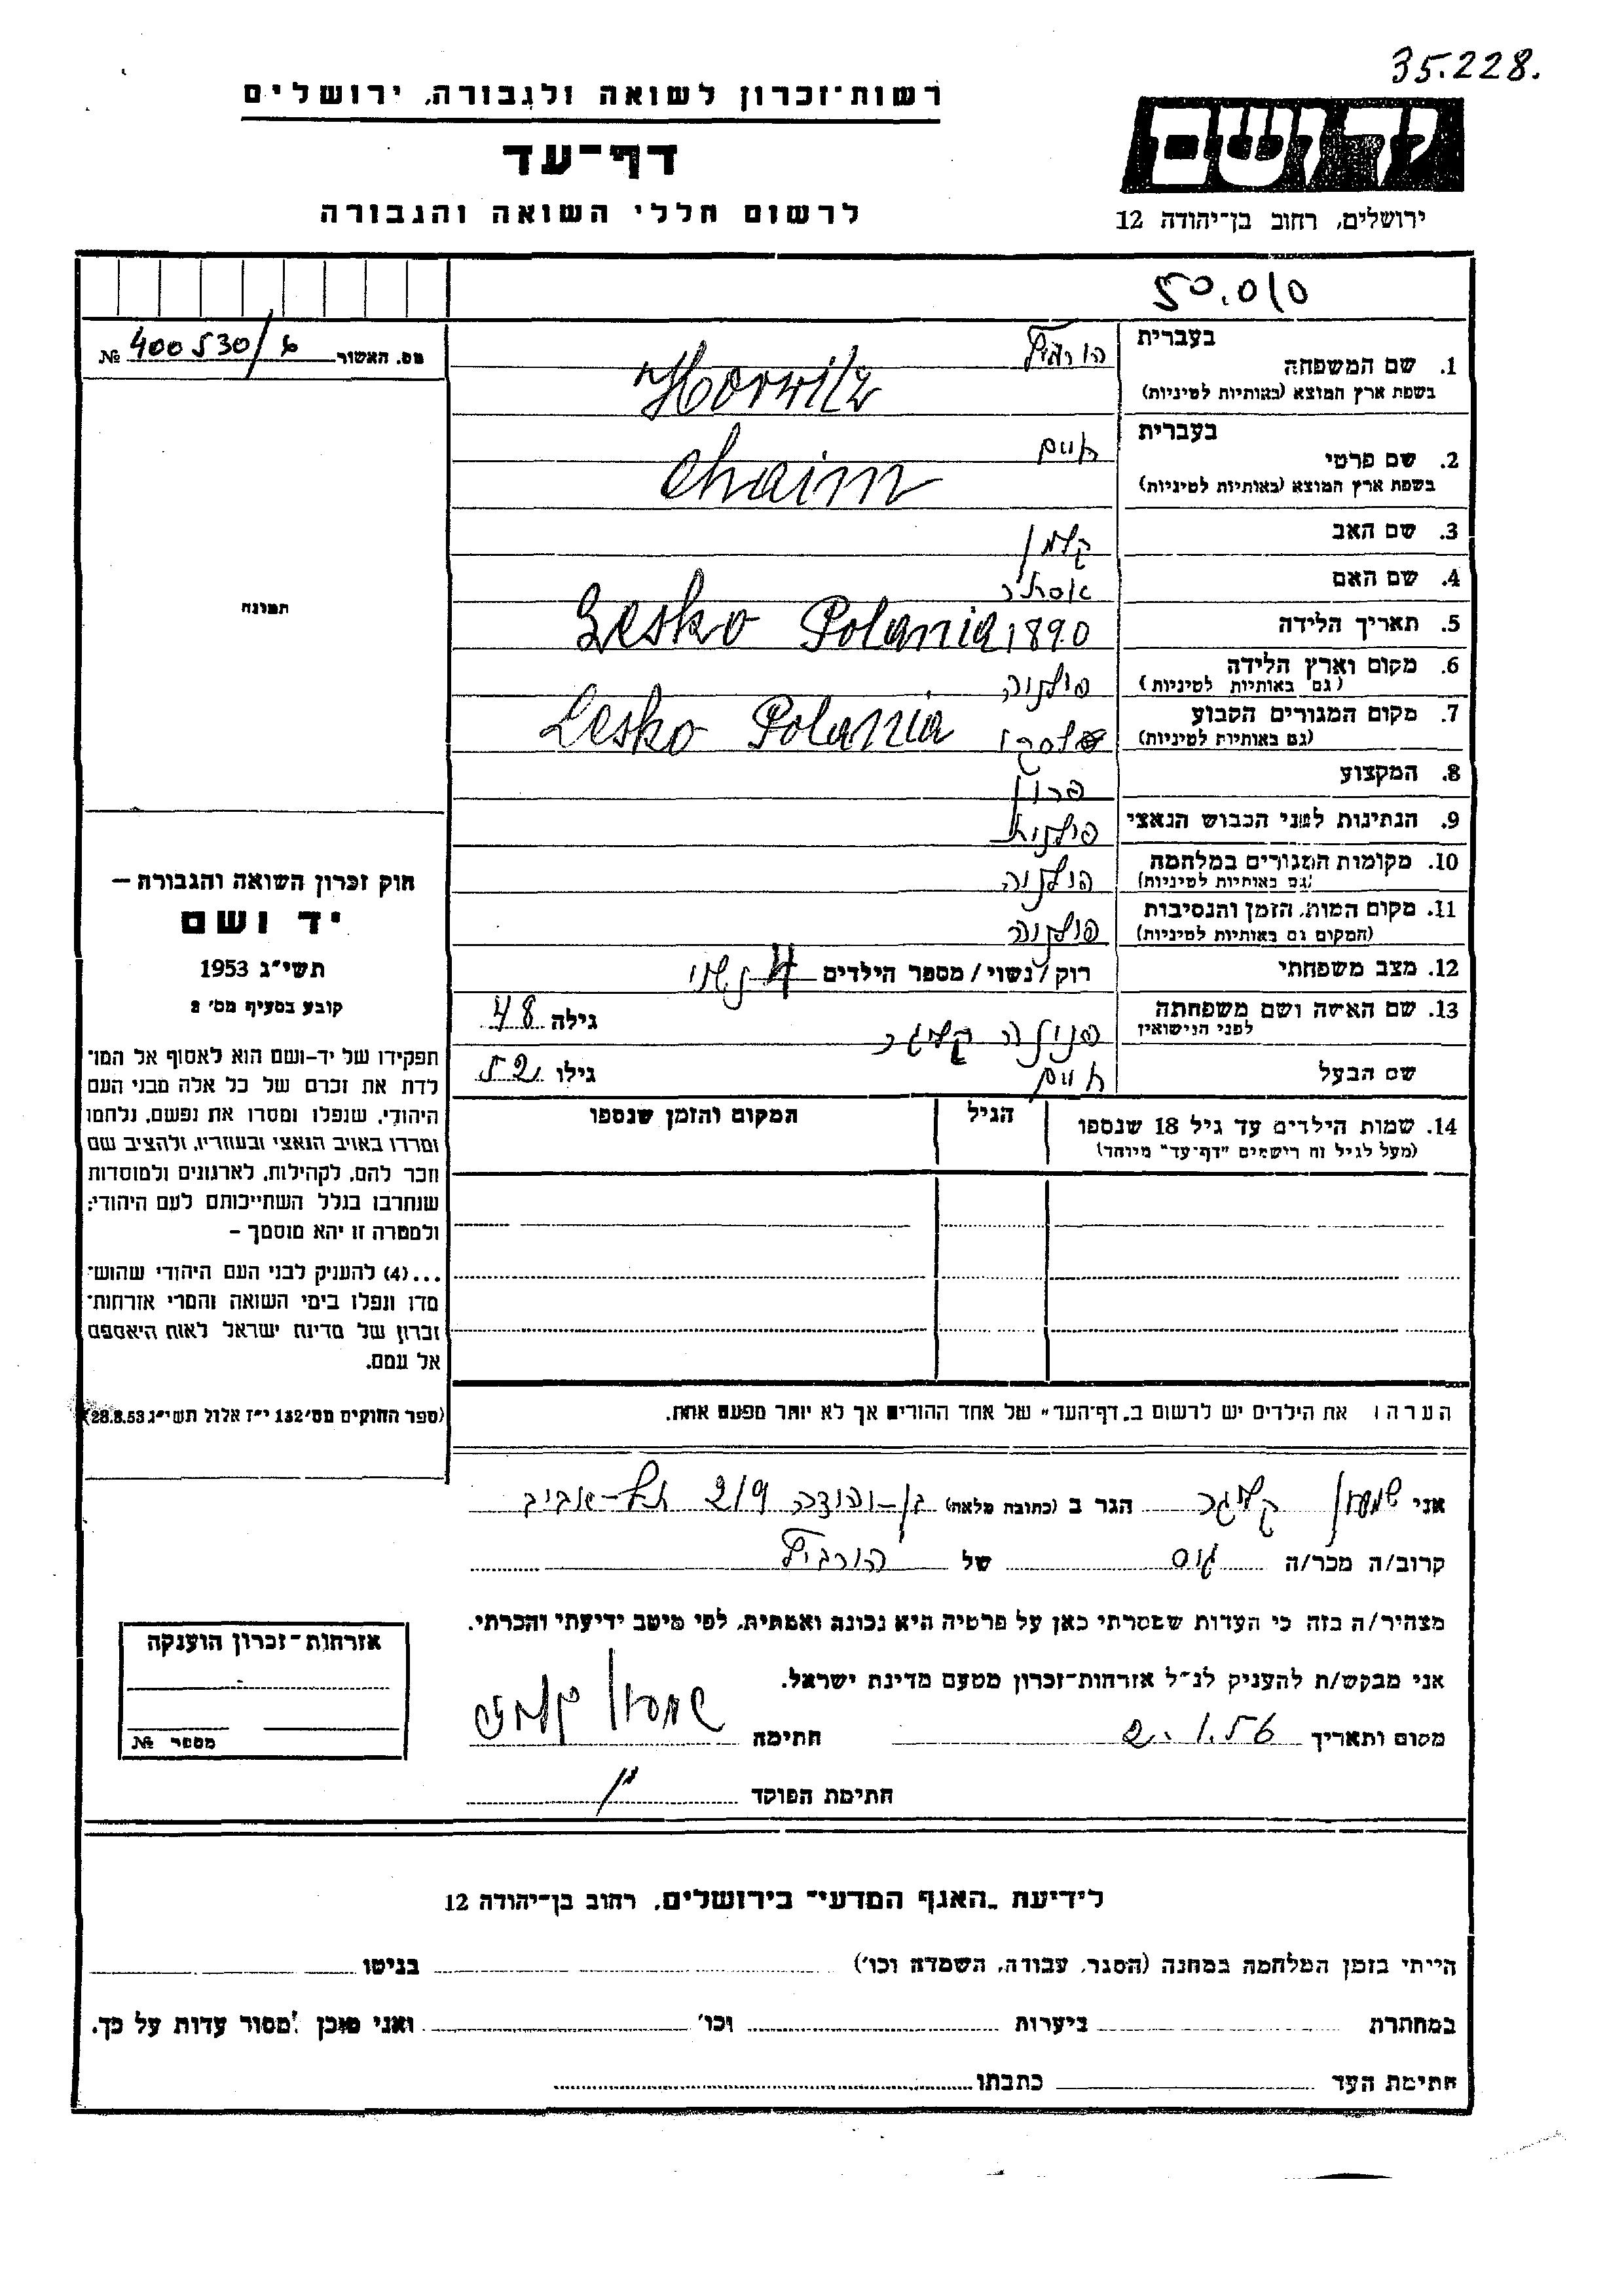 35.228.
רשות־זכרון לשואה ולגבורה, ירושלים
דף־עד
לרשום חללי השואה והגבורה
יד ושם
ירושלים, רחוב בן־יהודה 12
מס. האשור 400530/ № 
בעברית הורביץ
1. שם המשפחה
בשפת ארץ המוצא (באותיות לטיניות) Horwitz
בעברית חיים
2. שם פרטי
בשפת ארץ המוצא (באותיות לטיניות) Chaim
3. שם האב קלמן
4. שם האם אסתר
5. תאריך הלידה 1890
6. מקום וארץ הלידה Lesko Polania
(גם באותיות לטיניות) פולניה
7. מקום המגורים הקבוע Lesko Polania
(גם באותיות לטיניות) לסקו
8. המקצוע
9. הנתינות לפני הכבוש הנאצי פולנית
10. מקומות המגורים במלחמה
(גם באותיות לטיניות) פולניה
11. מקום המות, הזמן והנסיבות
(המקום גם באותיות לטיניות) פולניה
12. מצב משפחתי רוק/נשוי/מספר הילדים 4 נשוי
13. שם האשה ושם משפחתה
לפני הנישואין גילה 48
שם הבעל חיים גילו 52
14. שמות הילדים עד גיל 18 שנספו הגיל המקום והזמן שנספו
(מעל לגיל זה רישמים "דף־עד" מיוחד)
תמונה
חוק זכרון השואה והגבורה –
יד ושם
תשי״ג 1953
קובע בסעיף מס׳ 2
תפקידו של יד-ושם הוא לאסוף אל המו־
לדת את זכרם של כל אלה מבני העם
היהודי, שנפלו ומסרו את נפשם, נלחמו
ומרדו באויב הנאצי ובעוזריו, ולהציב שם
וזכר להם, לקהילות, לארגונים ולמוסדות
שנחרבו בגלל השתייכותם לעם היהודי;
ולמטרה זו יהא מוסמך –
...(4) להעניק לבני העם היהודי שהוש־
מדו ונפלו בימי השואה והמרי אזרחות־
זכרון של מדינת ישראל לאות היאספם
אל עמם.
(ספר החוקים מס׳ 132 י״ז אלול תשי״ג 28.8.53)
הערה: את הילדים יש לרשום ב„דף־העד" של אחד ההורים אך לא יותר מפעם אחת.
אני שמעון הגר ב (כתובת מלאה) בן-יהודה 219 תל-אביב
קרוב/ה מכר/ה גיס של הורביץ
מצהיר/ה בזה כי העדות שמסרתי כאן על פרטיה היא נכונה ואמתית, לפי מיטב ידיעתי והכרתי.
אני מבקש/ת להעניק לנ״ל אזרחות־זכרון מטעם מדינת ישראל.
מקום ותאריך 2.1.56 חתימה שמעון
חתימת הפוקד
אזרחות־זכרון הוענקה
מספר №
לידיעת „האגף המדעי" בירושלים, רחוב בן־יהודה 12
הייתי בזמן המלחמה במחנה (הסגר, עבודה, השמדה וכו׳) בגיטו
במחתרת ביערות וכו׳ ואני מוכן למסור עדות על כך.
חתימת העד כתבתו